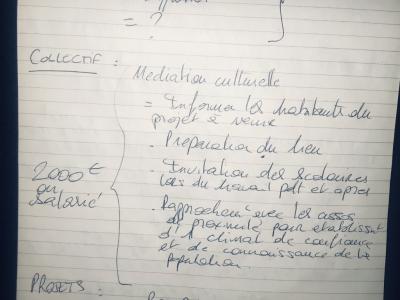 = ?
COLLECTIF :
Médiation culturelle
= Informer les habitants du
projet à venir
. Préparation du lieu
. Invitation des scolaires
lors du travail pdt et après
2000 €
ou
salarié
. Rapprochemt avec les assos
de proximité pour
d'1 climat de confiance
et de connaissance de la
population.
PROJETS :